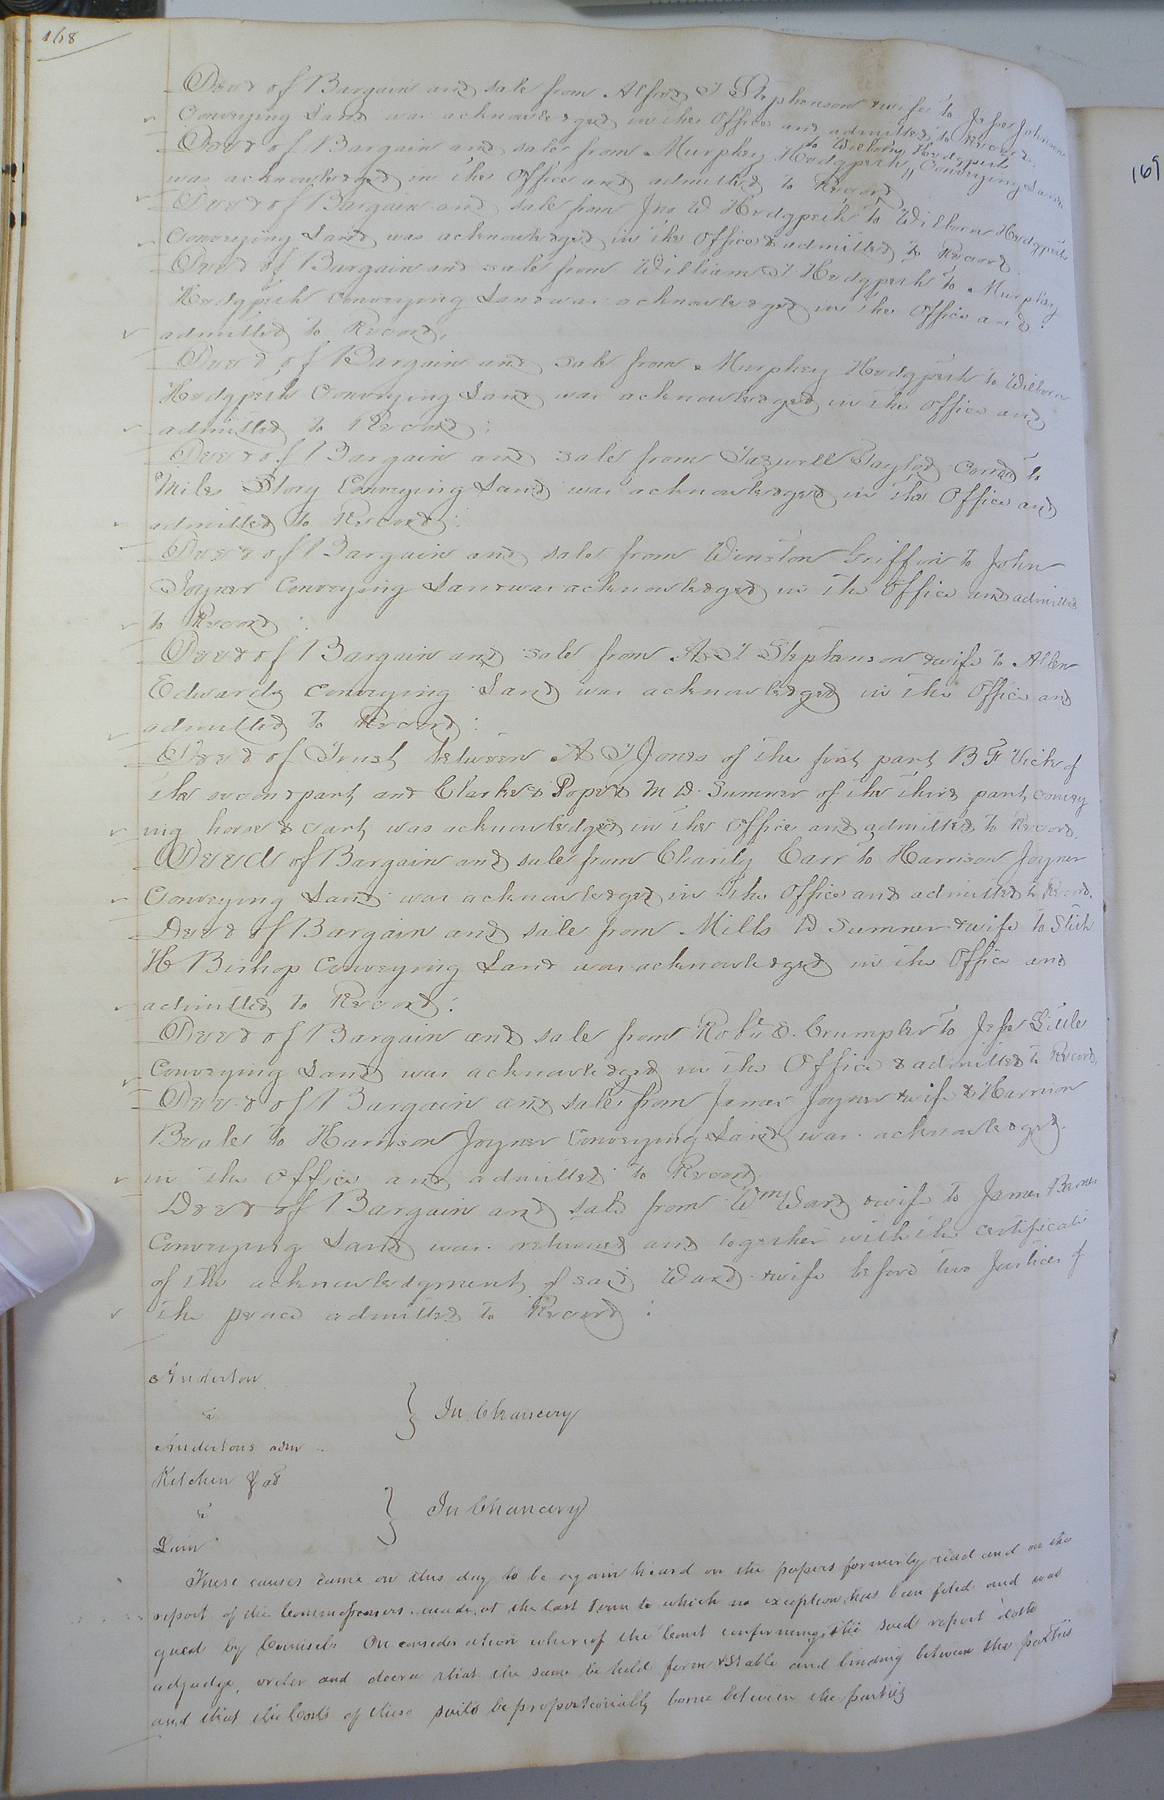 168
Deed of Bargain and sale from Alfred T Stephenson & wife to Jesse Johnson
Conveying Land was acknowledged in the Office and admitted to Record.
Deed of Bargain and sale from Murphey Hedgpeth to Wilborn Hedgpeth Conveying Land
was acknowledged in the Office and admitted to Record
Deed of Bargain and sale from Jno W Hedgpeth to Wilborn Hedgpeth
Conveying Land was acknowledged in the Office & admitted to Record
Deed of Bargain and sale from William T Hedgpeth to Murphey
Hedgpeth Conveying Land was acknowledged in the Office and
admitted to Record.
Deed of Bargain and sale from Murphey Hedgpeth to Wilborn
Hedgpeth Conveying Land was acknowledged in the Office and
admitted to Record:
Deed of Bargain and sale from Tazwell Taylor Comr to
Miles Story Conveying Land was acknowledged in the Office and
admitted to Record:
Deed of Bargain and sale from Winston Griffin to John
Joyner Conveying Land was acknowledged in the Office and admitted
to Record:
Deed of Bargain and sale from A T Stephenson & wife to Allen
Edwards Conveying Land was acknowledged in the Office and
admitted to Record:
Deed of Trust between A T Jones of the first part B F Vick of
the second part and Clarke & Pope & M D. Sumner of the third part, convey
ing horse & cart was acknowledged in the Office and admitted to Record.
Deed of Bargain and sale from Charity Carr to Harrison Joyner
Conveying Land was acknowledged in the Office and admitted to Record.
Deed of Bargain and sale from Mills D Sumner & wife to
H Bishop Conveying Land was acknowledged in the Office and
admitted to Record:
Deed of Bargain and sale from Robt S. Crumpler to Jesse Little
Conveying Land was acknowledged in the Office & admitted to Record
Deed of Bargain and sale from James Joyner & wife & Harrison
Beale to Harrison Joyner Conveying Land was acknowledged
in the Office and admitted to Record
Deed of Bargain and sale from Wm Ward & wife to James Barnes
Conveying Land was returned and together with the certificate
of the acknowledgment of said Ward & wife before two Justices of
the peace admitted to Record:
Anderton
vs
Andertons adm
} In Chancery
Kitchen & als
vs
} In Chancery
These causes came on this day to be again heard on the papers formerly read and on the
report of the Commissioners made at the last term to which no exception has been filed and was
gued by Counsel. On consideration whereof the Court confirming the said report doth
adjudge, order and decree that the same be held firm & stable and binding between the parties
and that the Costs of these suits be proportionably borne between the parties
169